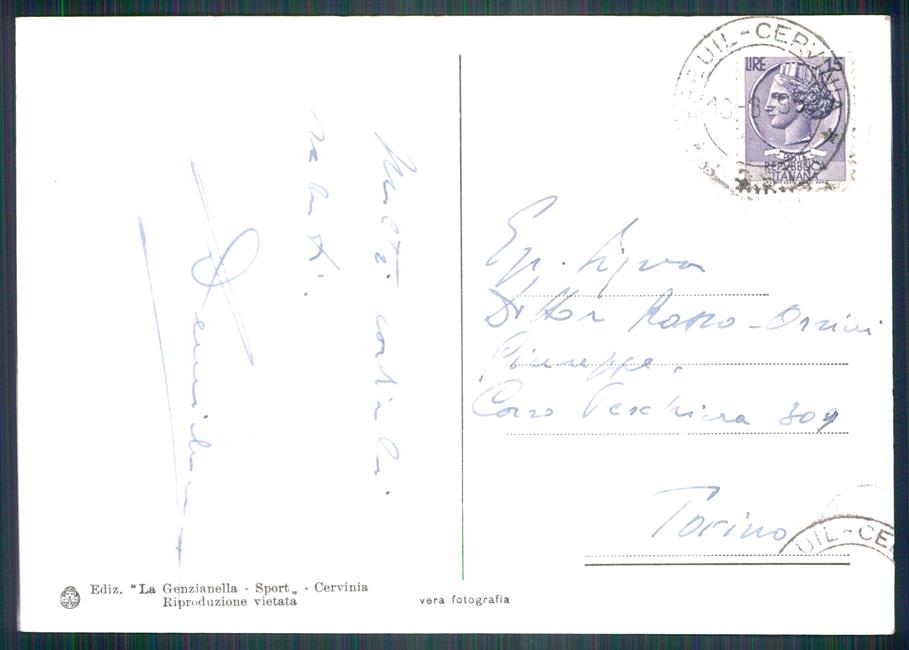 Molti cordiali
saluti.
UIL-CERVINIA
LIRE 15
POSTE
REPVBBLICA
ITALIANA
Eg. Signor
Dottor Rosso-Orsini
Giuseppe.
Corso Peschiera 309
Torino
UIL-CE
Ediz. "La Genzianella - Sport„ - Cervinia
Riproduzione vietata
vera fotografia